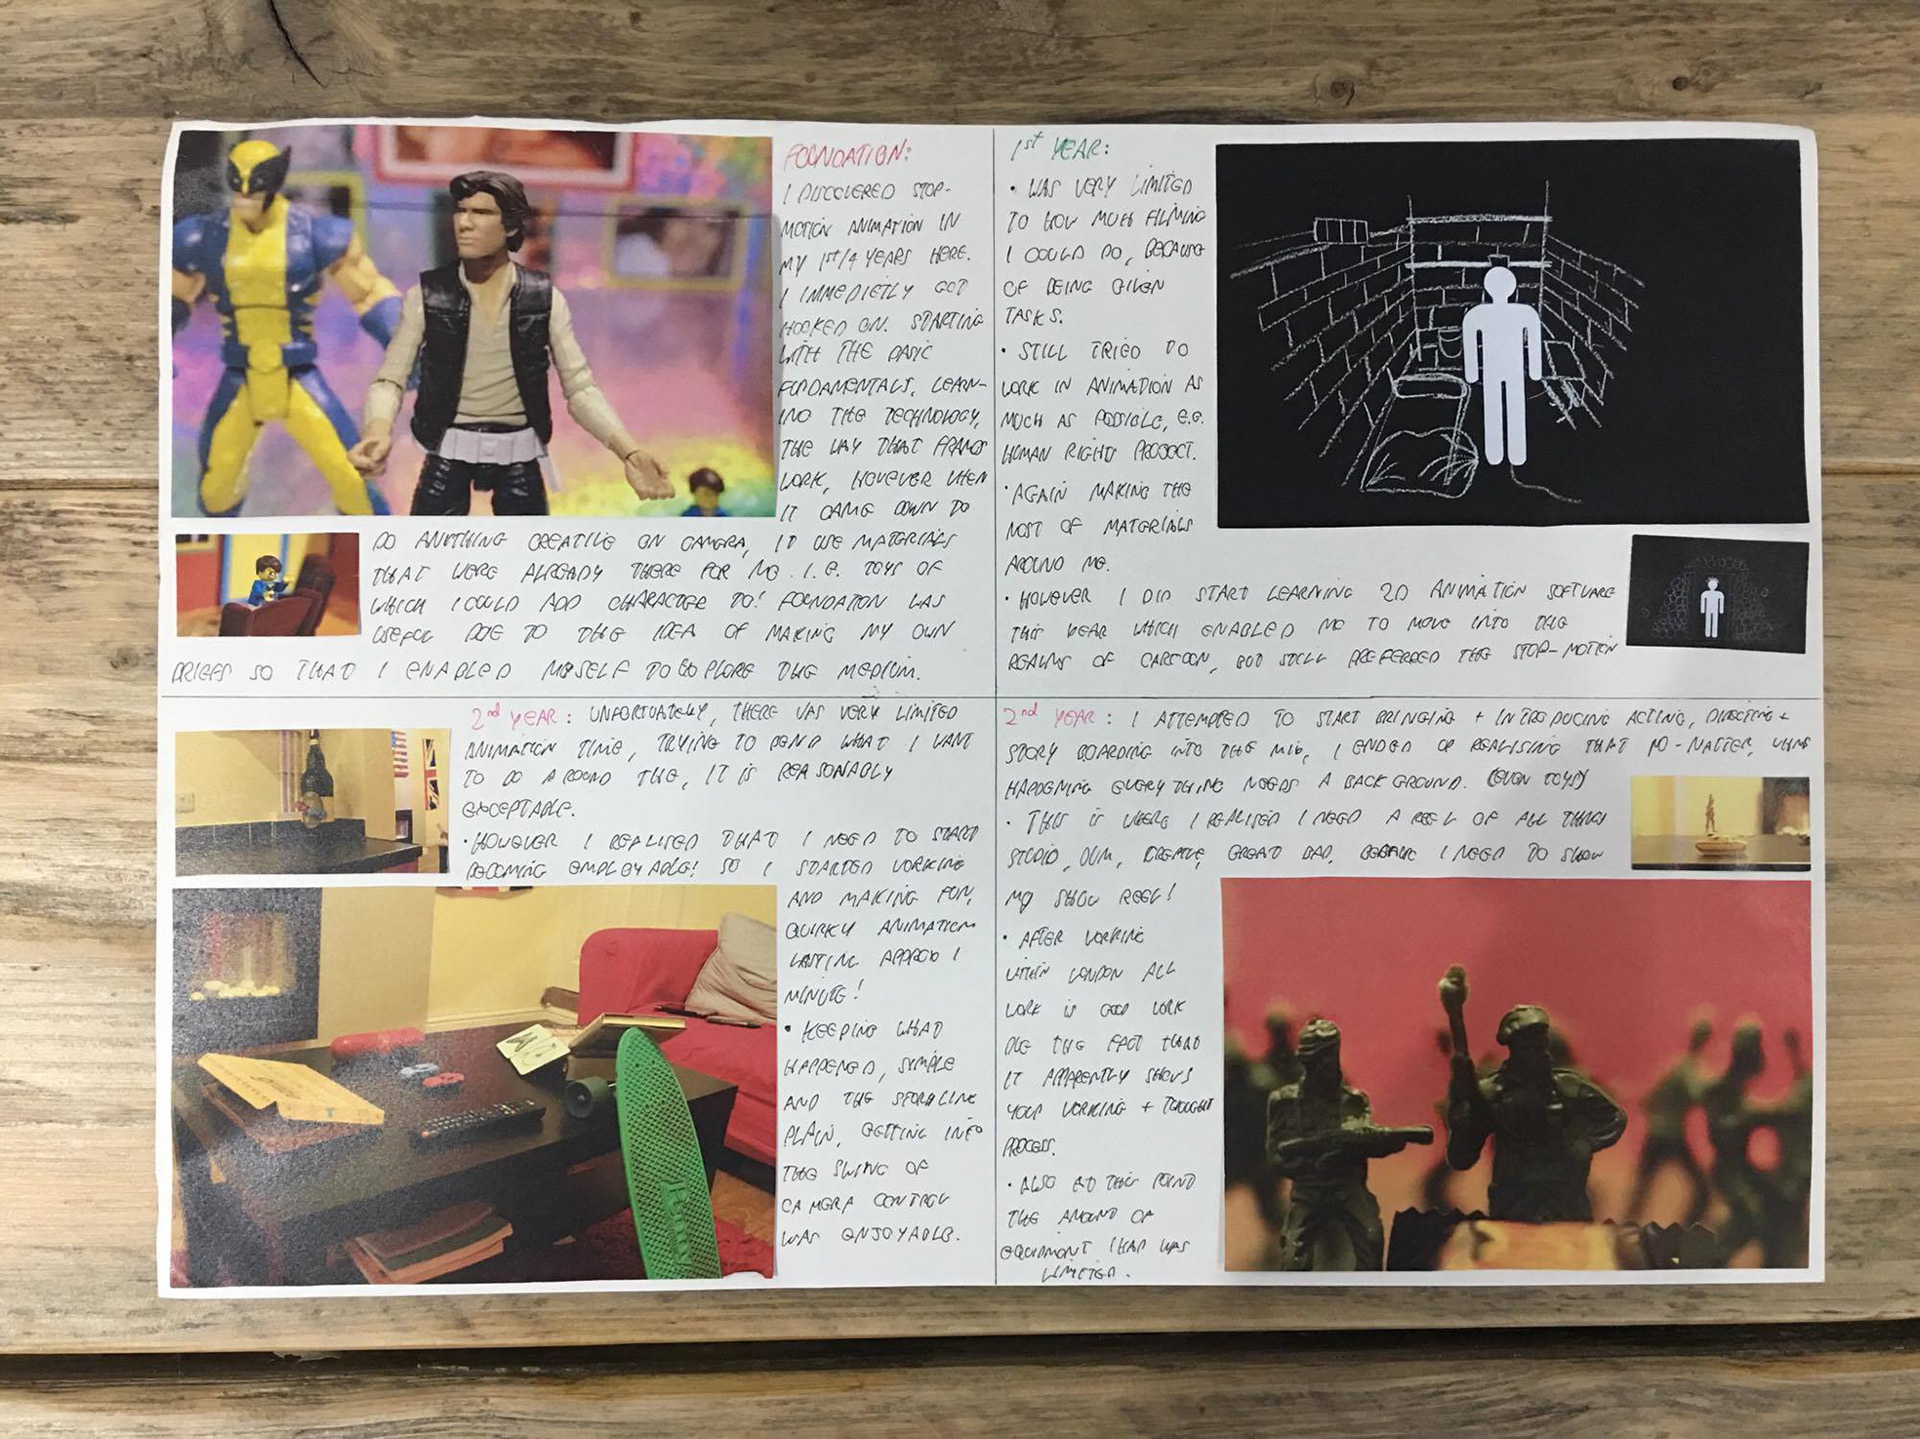 FOUNDATION:
I DISCOVERED STOP-
MOTION ANIMATION IN
MY 1st/4 YEARS HERE.
I IMMEDIETLY GOT
HOOKED ON. STARTING
WITH THE BASIC
FUNDAMENTALS, LEARN-
ING THE TECHNOLOGY,
THE WAY THAT FRAMES
WORK, HOWEVER WHEN
IT CAME DOWN TO
DO ANYTHING CREATIVE ON CAMERA, I'D USE MATERIALS
THAT WERE ALREADY THERE FOR ME. I.E. TOYS OF
WHICH I COULD ADD CHARACTER TO! FOUNDATION WAS
USEFUL DUE TO THE IDEA OF MAKING MY OWN
BRIEFS SO THAT I ENABLED MYSELF TO EXPLORE THE MEDIUM.
1st YEAR:
• WAS VERY LIMITED
TO HOW MUCH FILMING
I COULD DO, BECAUSE
OF BEING GIVEN
TASKS.
• STILL TRIED TO
WORK IN ANIMATION AS
MUCH AS POSSIBLE, E.G.
HUMAN RIGHTS PROJECT.
• AGAIN MAKING THE
MOST OF MATERIALS
AROUND ME.
• HOWEVER I DID START LEARNING 2D ANIMATION SOFTWARE
THIS YEAR WHICH ENABLED ME TO MOVE INTO THE
REALMS OF CARTOON, BUT STILL PREFERRED THE STOP-MOTION
2nd YEAR: UNFORTUATELY, THERE WAS VERY LIMITED
ANIMATION TIME, TRYING TO BEND WHAT I WANT
TO DO AROUND THE, IT IS REASONABLY
EXCEPTABLE.
• HOWEVER I REALISED THAT I NEED TO START
BECOMING EMPLOYABLE! SO I STARTED WORKING
AND MAKING FUN,
QUIRKY ANIMATION
LASTING APPROX 1
MINUTE!
• KEEPING WHAT
HAPPENED, SIMPLE
AND THE STORYLINE
PLAIN, GETTING INTO
THE SWING OF
CAMERA CONTROL
WAS ENJOYABLE.
Penny
2nd YEAR: I ATTEMPTED TO START BRINGING + INTRODUCING ACTING, DIRECTING +
STORY BOARDING INTO THE MIX, I ENDED UP REALISING THAT NO-MATTER, WHATS
HAPPENING EVERYTHING NEEDS A BACKGROUND. (EVEN TOYS)
• THIS IS WHERE I REALISED I NEED A REEL OF ALL THINGS
STUDIO, CREATIVE, GREAT BAD, BECAUSE I NEED TO SHOW
MY SHOW REEL!
• AFTER WORKING
WITHIN LONDON ALL
WORK IS GOOD WORK
DUE THE FACT THAT
IT APPARENTLY SHOWS
YOUR WORKING + THOUGHT
PROCESS.
• ALSO AT THIS POINT
THE AMOUNT OF
EQUIPMENT I HAD WAS
LIMITED.